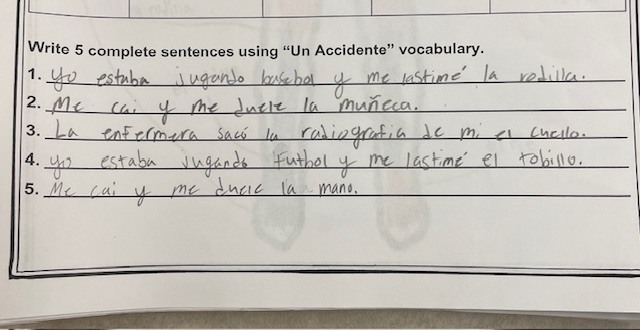 Write 5 complete sentences using “Un Accidente” vocabulary.
1. Yo estaba jugando basebol y me lastimé la rodilla.
2. Me cai y me duele la muñeca.
3. La enfermera sacó la radiografia de mi el cuello.
4. yo estaba jugando futbol y me lastimé el tobillo.
5. Me cai y me duele la mano.